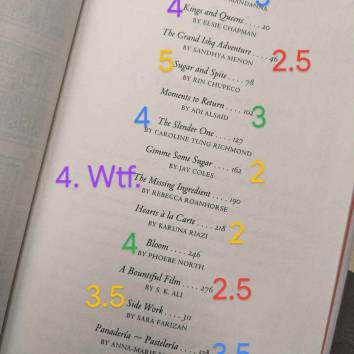 4 Kings and Queens . . . . 20
BY ELSIE CHAPMAN
The Grand Ishq Adventure . . . . 46
BY SANDHYA MENON 2.5
5 Sugar and Spite . . . . 78
BY RIN CHUPECO
Moments to Return . . . . 102
BY ADI ALSAID 3
4 The Slender One . . . . 127
BY CAROLINE TUNG RICHMOND
Gimme Some Sugar . . . . 162
BY JAY COLES 2
4. Wtf. The Missing Ingredient . . . . 190
BY REBECCA ROANHORSE
Hearts à la Carte . . . . 218
BY KARUNA RIAZI 2
4 Bloom . . . . 246
BY PHOEBE NORTH
A Bountiful Film . . . . 276
BY S. K. ALI 2.5
3.5 Side Work . . . . 311
BY SARA FARIZAN
Panadería ~ Pastelería . . . . 328
BY ANNA-MARIE 3.5